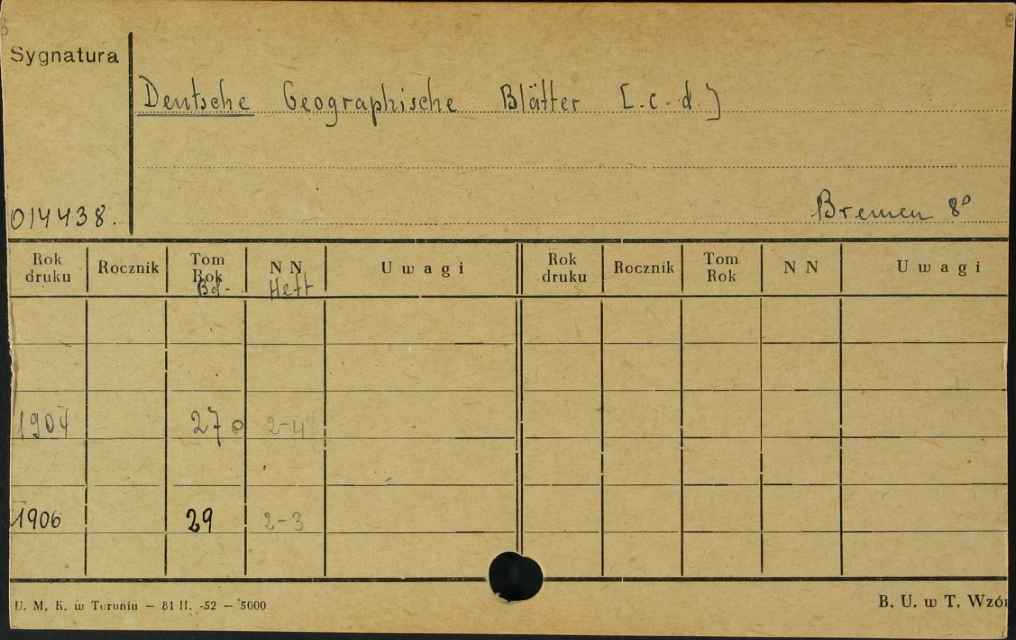 Sygnatura
Deutsche Geographische Blätter [.c.d.]
014438.
Bremen 8°
Rok druku Rocznik Tom Rok Bd. N N Heft U w a g i Rok druku Rocznik Tom Rok N N U w a g i
1904 27 2-4
1906 29 2-3
U. M. K. w Toruniu — 81 II. -52 — 5000
B. U. w T. Wzór